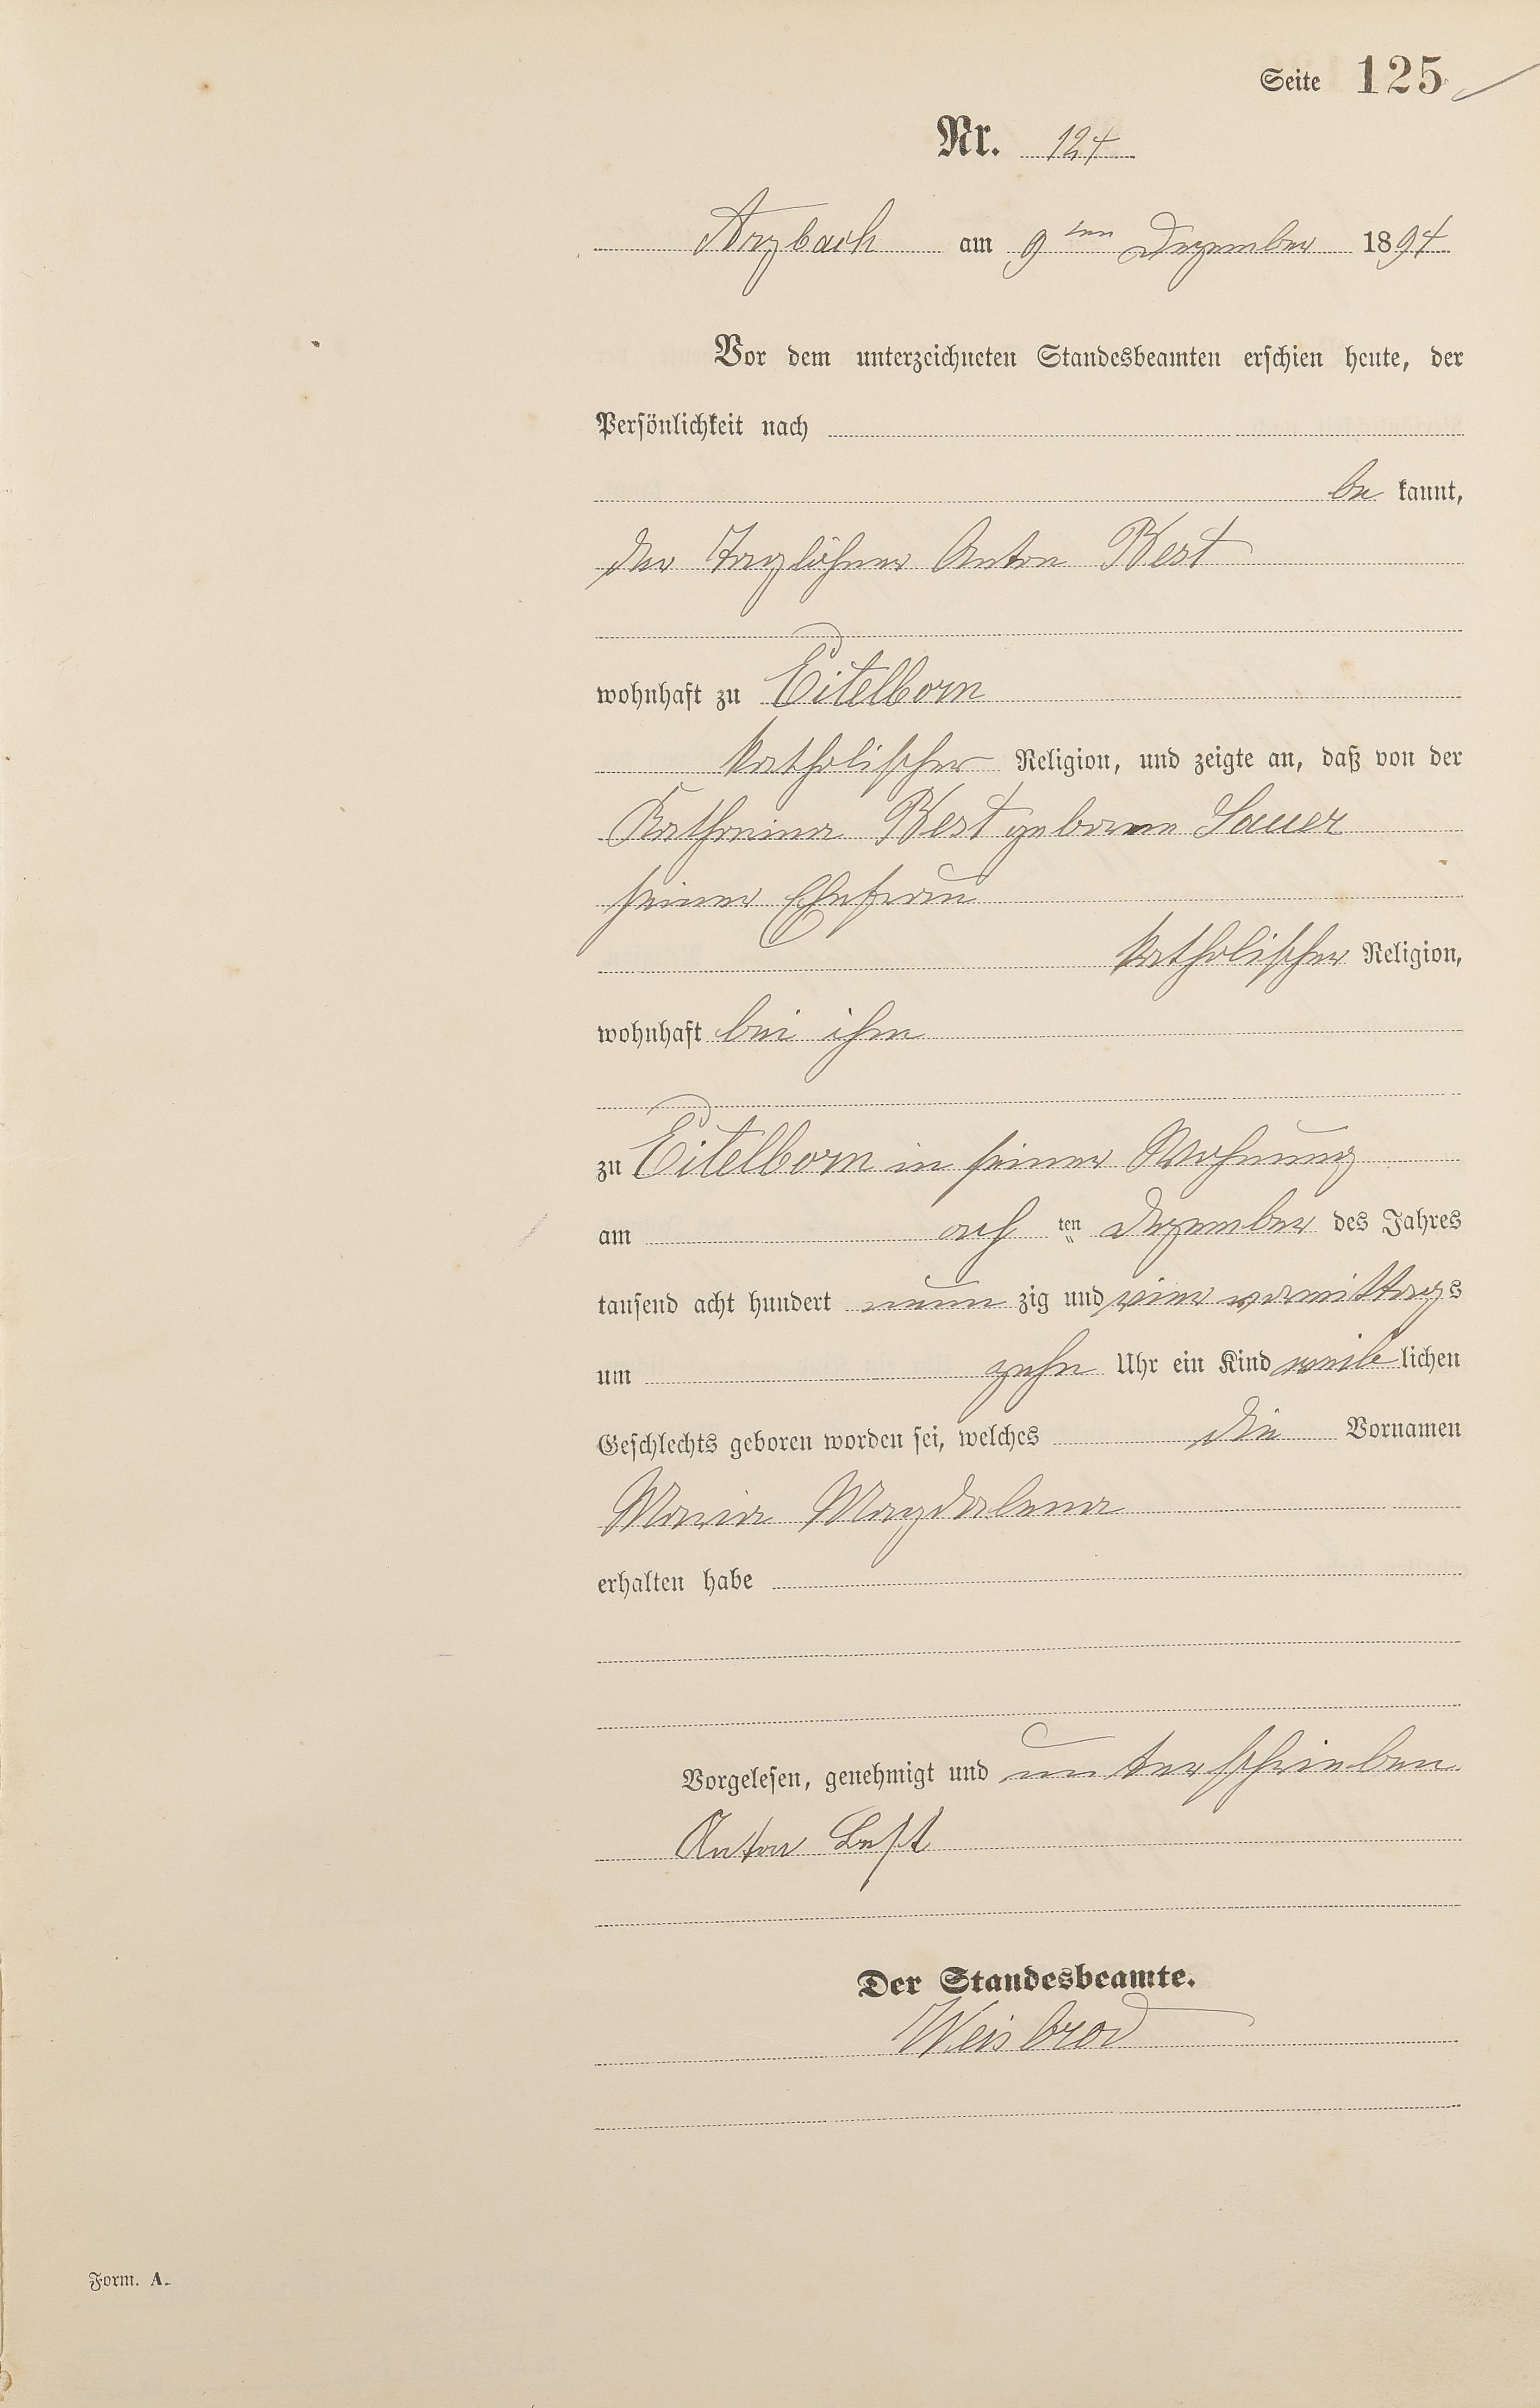 Seite 125
Nr. 124
Arzbach am 9ten Dezember 1894
Vor dem unterzeichneten Standesbeamten erschien heute, der
Persönlichkeit nach
be kannt,
der Taglöhner Anton Best
wohnhaft zu Eitelborn
katholischer Religion, und zeigte an, daß von der
Katharina Best geborene Sauer
seiner Ehefrau
katholischer Religion,
wohnhaft bei ihm
zu Eitelborn in seiner Wohnung
am ach ten Dezember des Jahres
tausend acht hundert neun zig und vier vormittags
um zehn Uhr ein Kind weib lichen
Geschlechts geboren worden sei, welches die Vornamen
Maria Magdalena
erhalten habe
Vorgelesen, genehmigt und unterschrieben
Anton Best
Der Standesbeamte.
Weisbrod
Form. A.